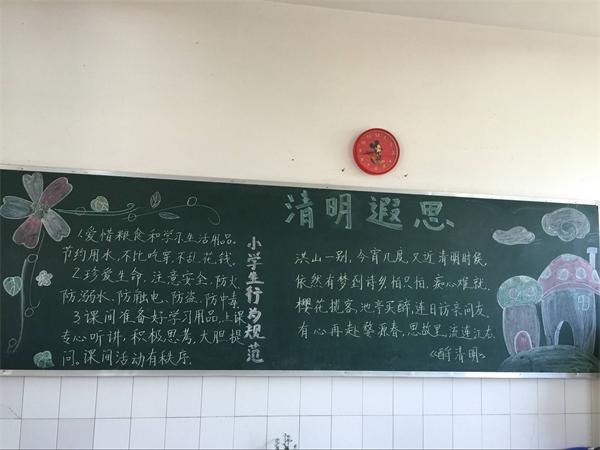 清明遐思
1.爱惜粮食和学习生活用品。
节约用水,不比吃穿,不乱花钱。
2.珍爱生命,注意安全,防火
防溺水、防触电、防盗、防中毒
3.课间准备好学习用品,上课
专心听讲,积极思考,大胆提
问。课间活动有秩序.
小学生行为规范
洪山一别,今宵几度,又近清明时候,
依然有梦到诗乡怕只怕,痴心难就,
樱花揽客,池亭买醉,连日访亲问友,
有心再赴婺源春,思故里,流连江右.
《醉清明》